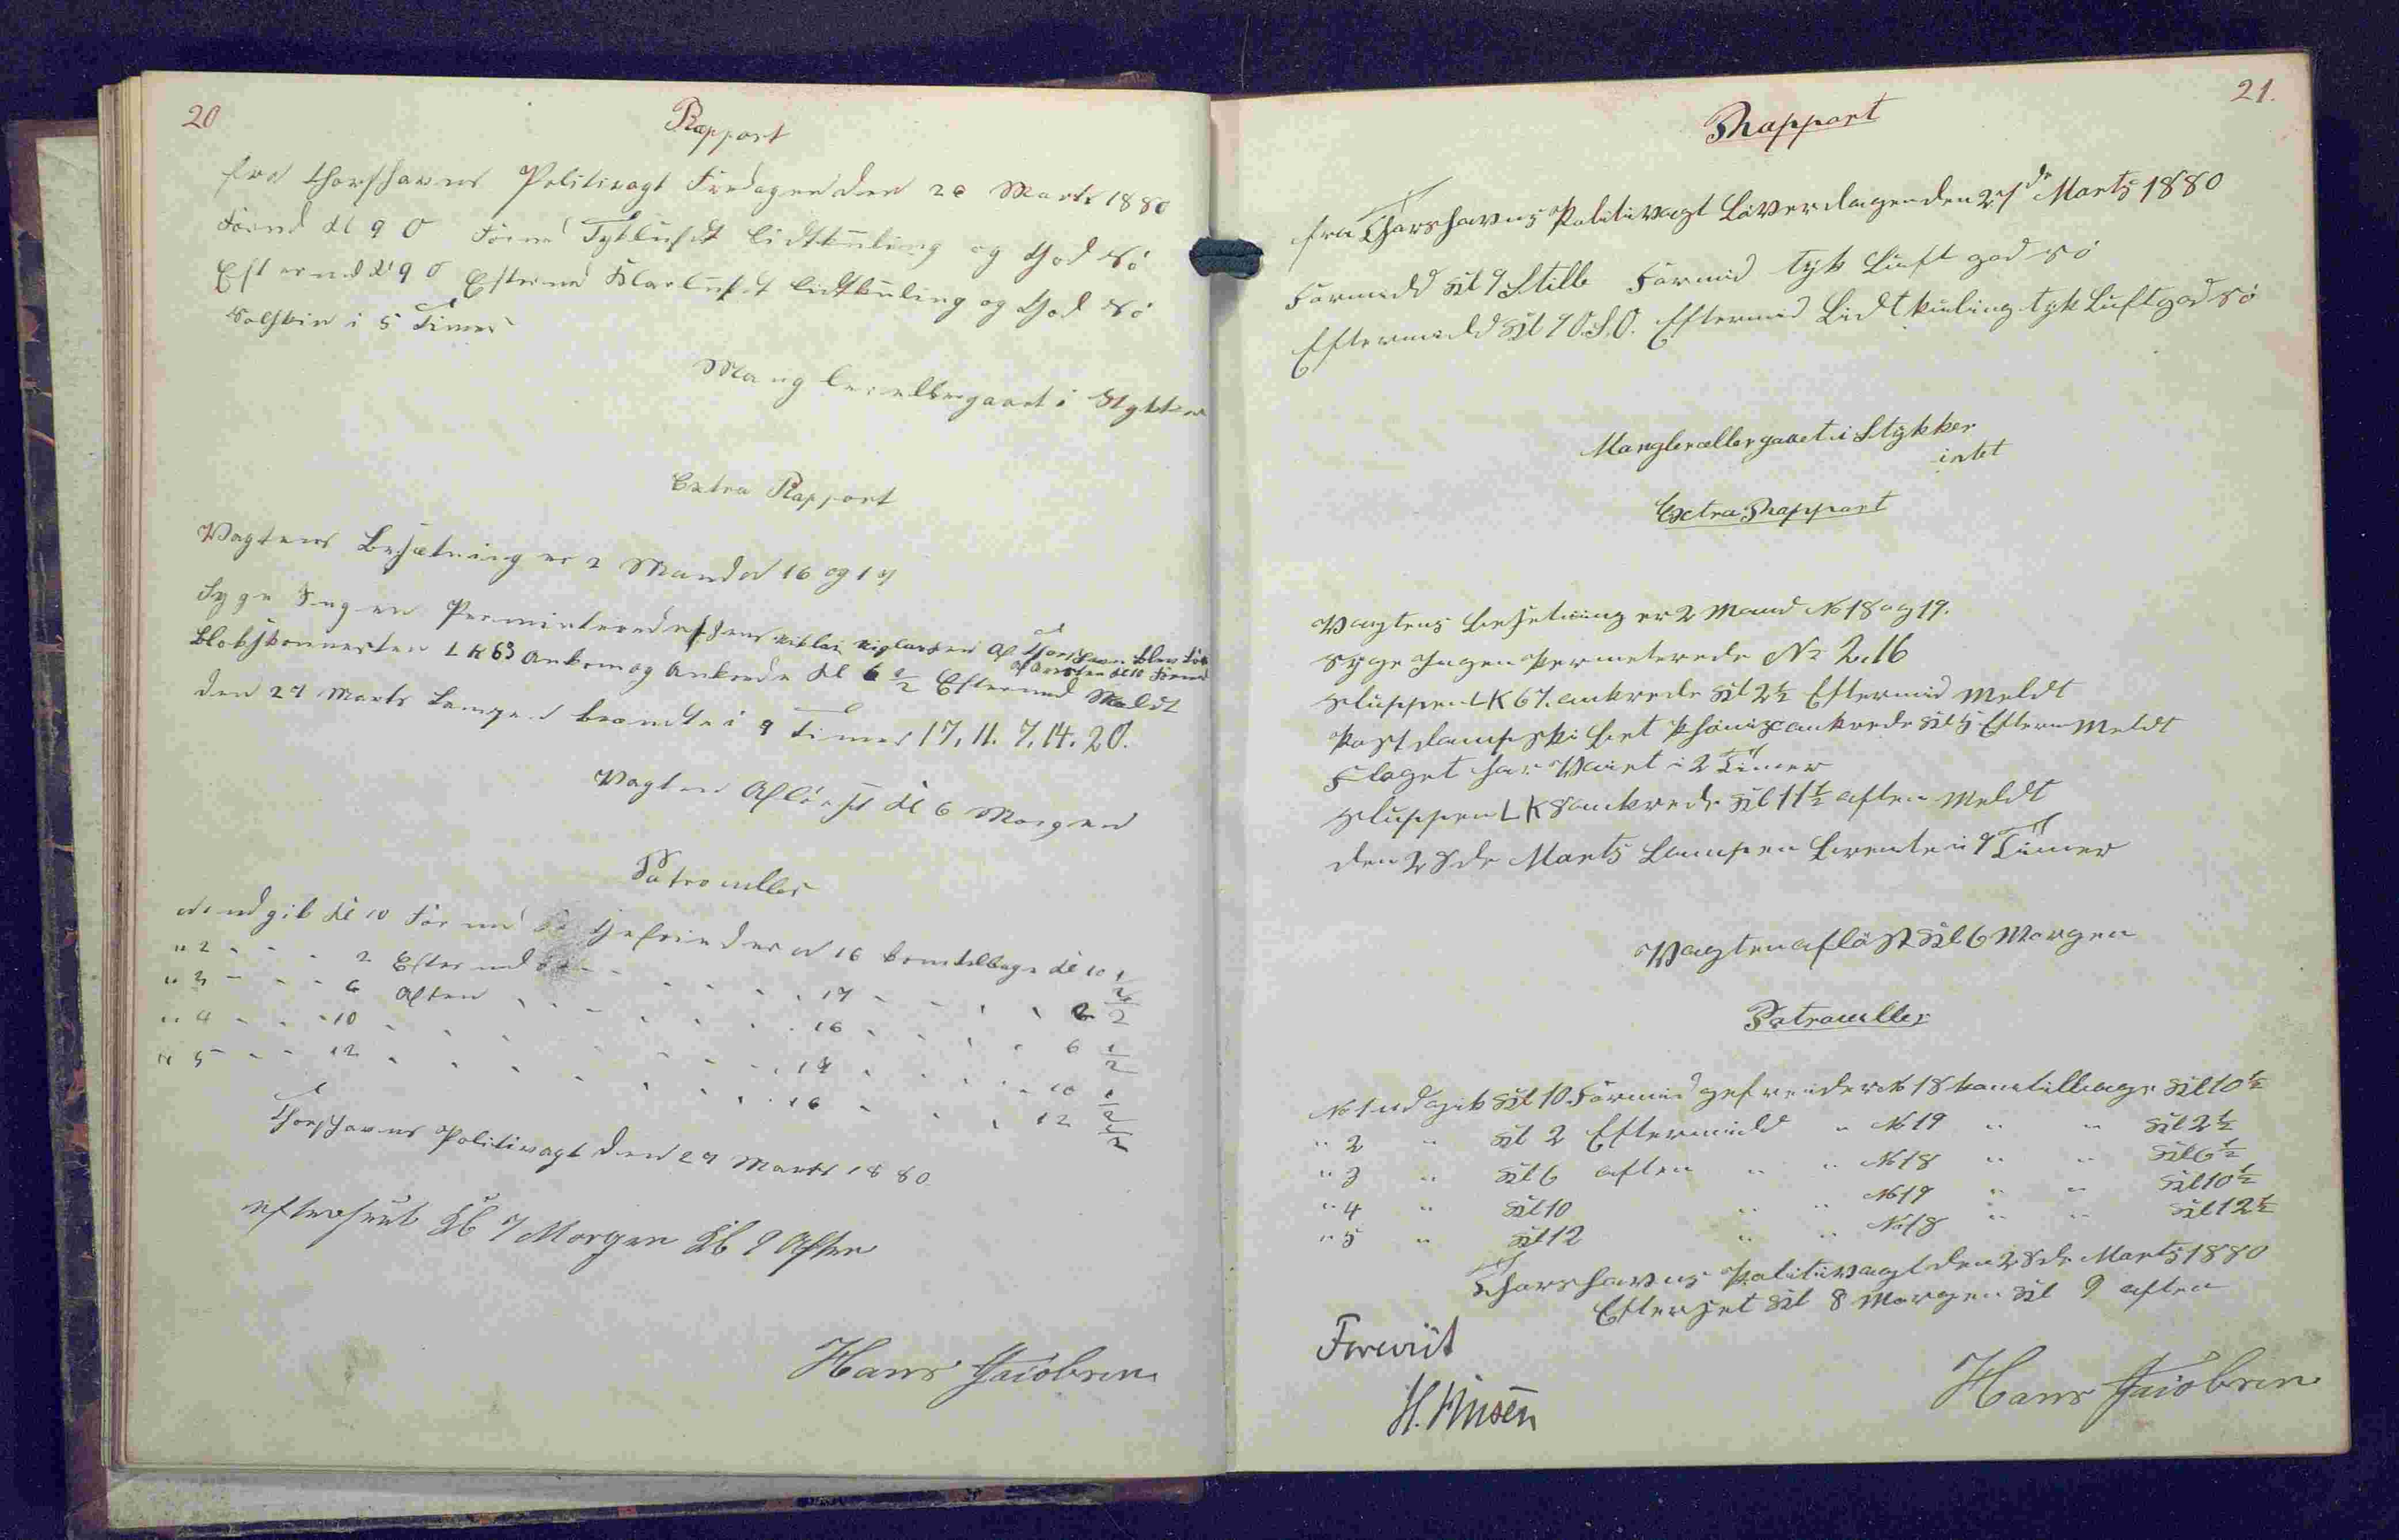 20
Rapport
fra Thorshavns Politivagt Fredagen den 26 Marts 1880
Formd Kl 9 O Formd Tykluft lidtkuling og God Sö
Eftermd Kl 9 O Eftermd Klarluft lidtkuling og God Sö
Solskin i 5 Timer
Mangler eller gaaet i Stykker
Extra Rapport
Vagtens Besætning er 2 Mand No 16 og 19
Syge Ingen Permiterede af Thorshavn blev
Kl 10 Formd
LK 63 Ankom og Ankrede Kl 6 1/2 Eftermd Meldt
den 27 Marts Lampen brændte i 9 Timer 17. 11. 7. 14. 20.
Vagten Aflöst Kl 6 Morgen
Patrouller
No 1 udgik Kl 10 Formd Gefreider No 16 kom tilbage Kl 10 1/2
" 2 - - - 2 Eftermd - - - - - 19 - - - - 2 1/2
" 3 - - - 6 Aften - - - - - 16 - - - - 6 1/2
" 4 - - - 10 - - - - - - 19 - - - - 10 1/2
" 5 - - - 12 - - - - - - 16 - - - - 12 1/2
Thorshavns Politivagt den 27 Marts 1880
efterseet Kl 7 Morgen Kl 9 Aften
Hans Jacobsen
21.
Rapport
fra Thorshavns Politivagt Löverdagen den 27de Marts 1880
Formidd Kl 9 Stille Formid tyk Luft god sö
Eftermidd Kl 9 O.S.O. Eftermid Lidt kuling tyk Luft god sö
Mangler eller gaaet i Stykker
intet
Extra Rapport
Vagtens Besetning er 2 Mand No 18 og 19.
Syge Ingen Permeterede No 2. 16
Sluppen LK 67. ankrede Kl 2 1/2 Eftermid Meldt
Postdampskibet Phönix ankrede Kl 5 Efterm Meldt
Flaget har Været i 2 Timer
Sluppen LK 8 ankrede Kl 11 1/2 aften Meldt
den 28de Marts Lampen brente i 9 Timer
Vagten aflöst Kl 6 Morgen
Patrouller
No 1 udgik Kl 10 Formid gefreider No 18 kom tilbage Kl 10 1/2
" 2 " Kl 2 Eftermidd " No 19 " " Kl 2 1/2
" 3 " Kl 6 aften " " No 18 " " Kl 6 1/2
" 4 " Kl 10 " " No 19 " " Kl 10 1/2
" 5 " Kl 12 " " No 18 " " Kl 12 1/2
Thorshavns Politivagt den 28de Marts 1880
Efterset Kl 8 Morgen Kl 9 aften
Forevist
Hans Jacobsen